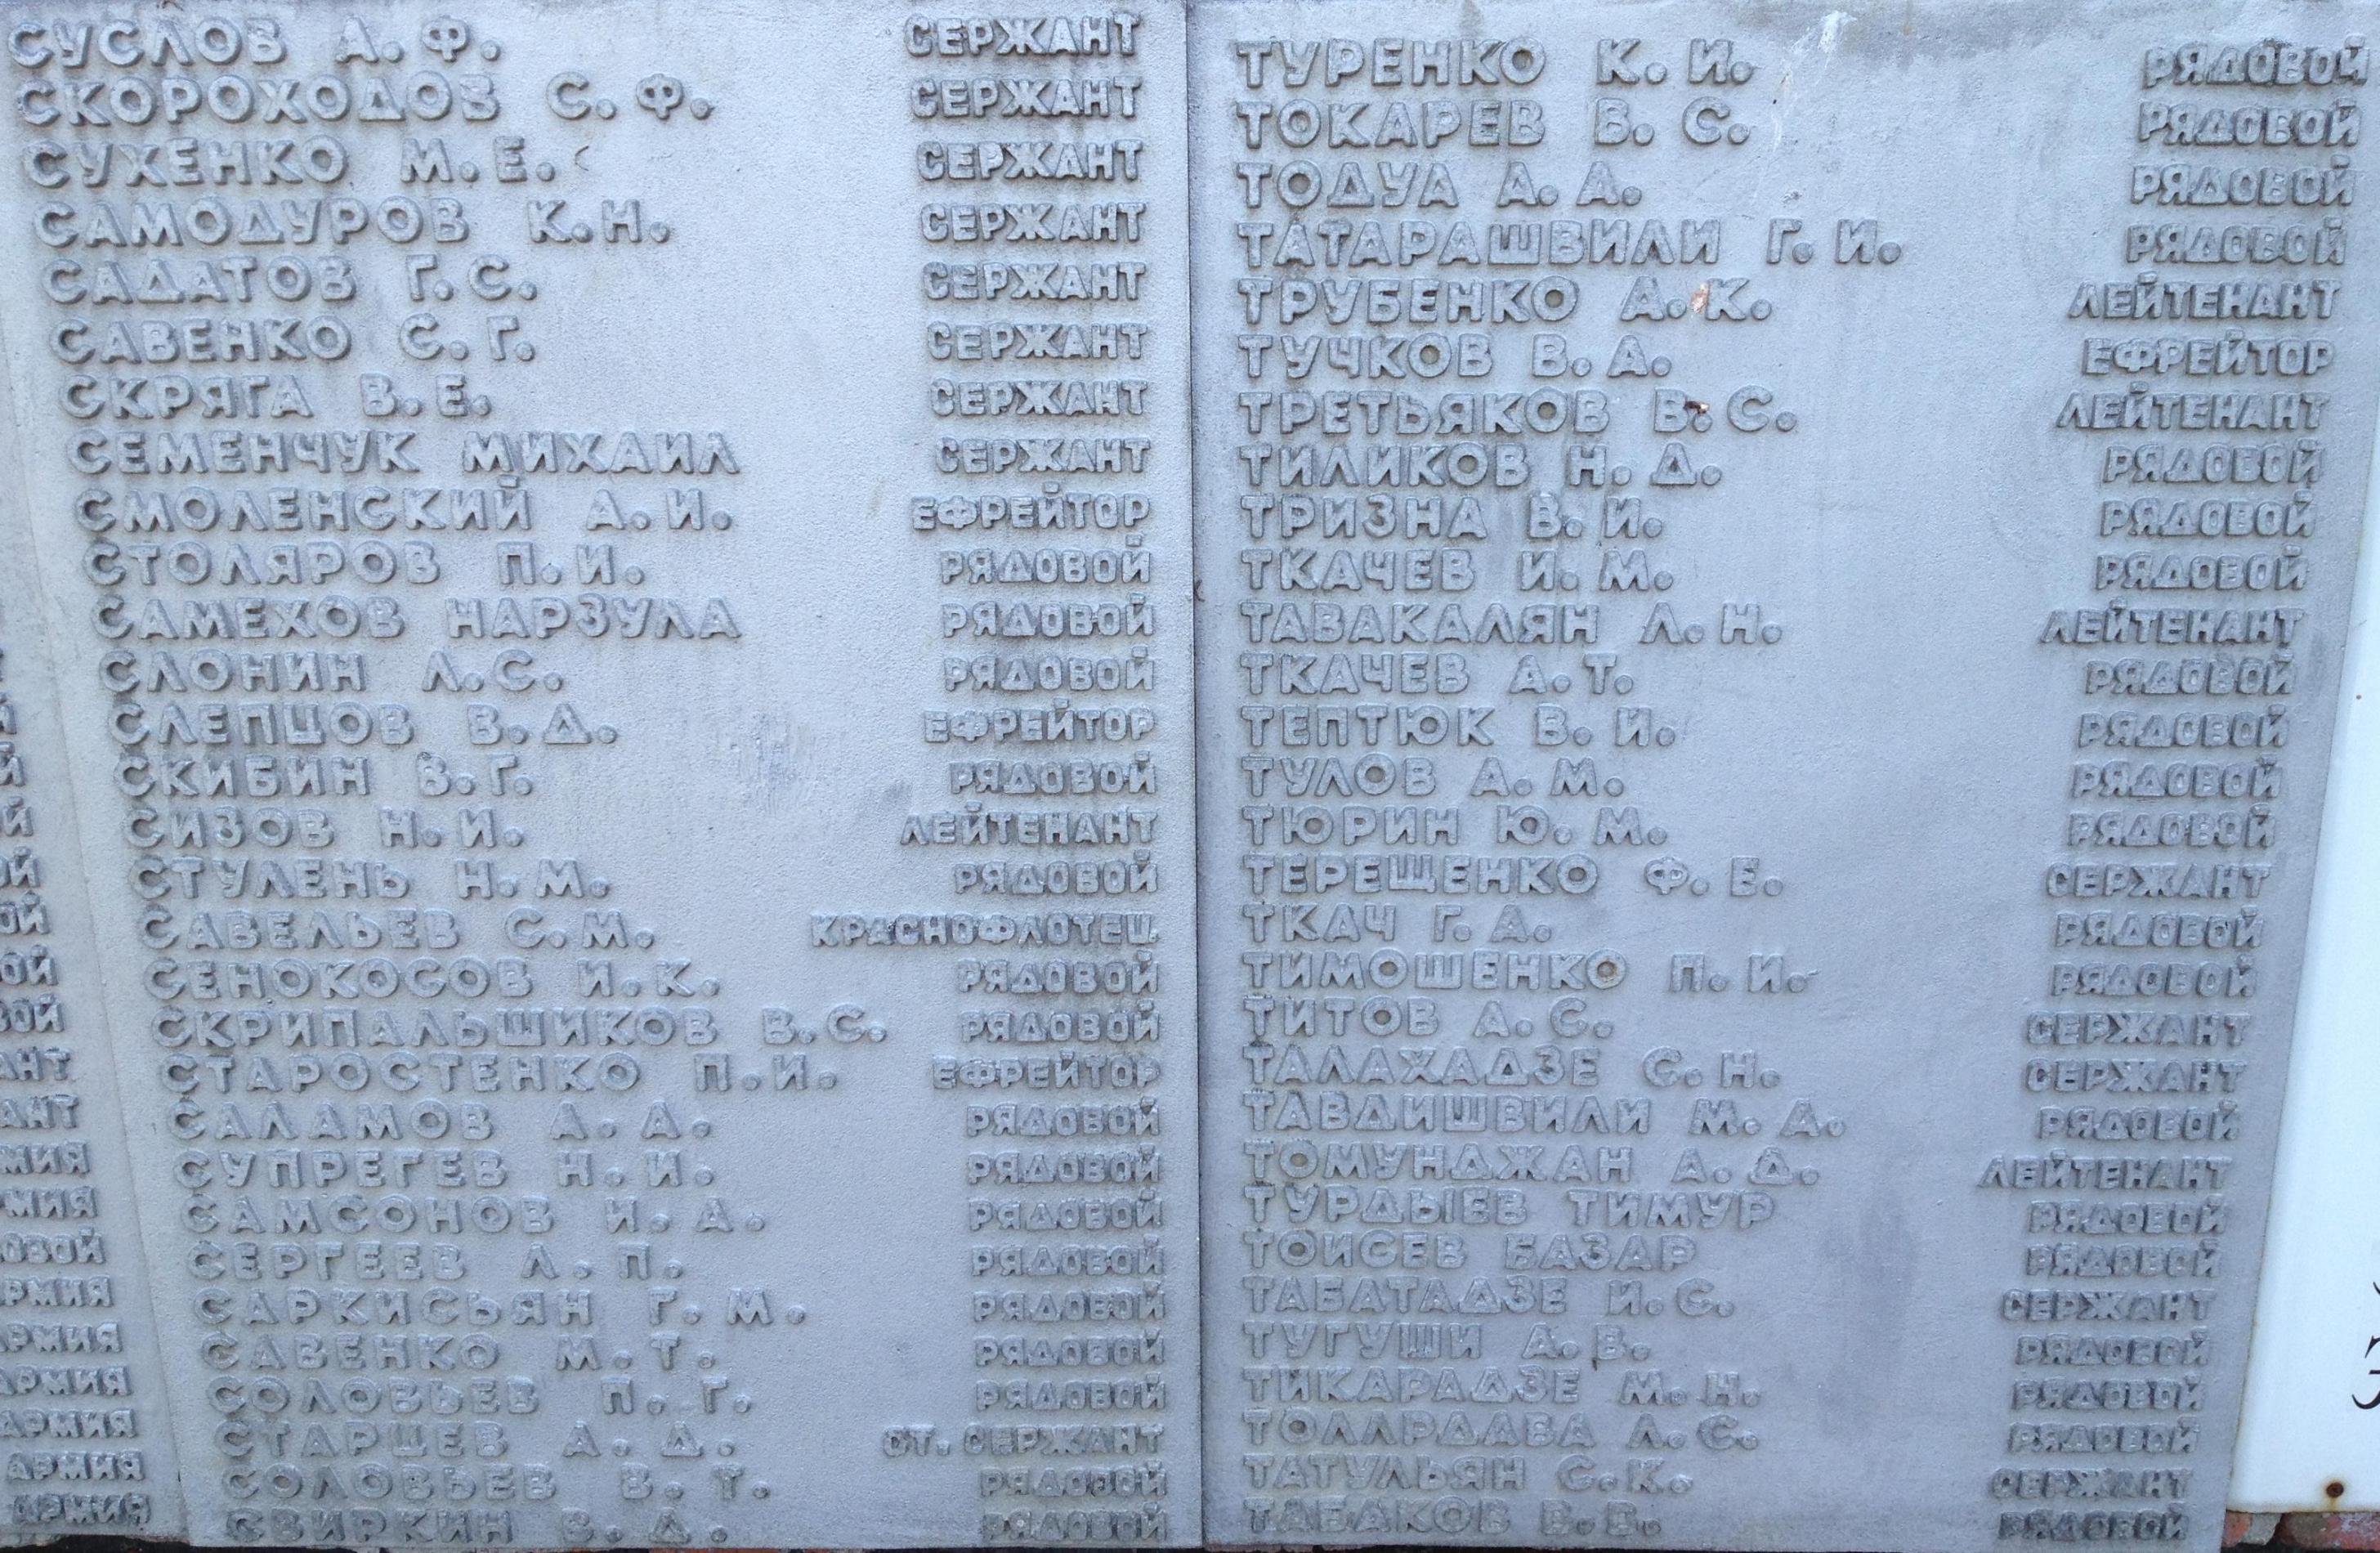 СУСЛОВ А.Ф. СЕРЖАНТ
СКОРОХОДОВ С.Ф. СЕРЖАНТ
СУХЕНКО М.Е. СЕРЖАНТ
САМОДУРОВ К.Н. СЕРЖАНТ
САДАТОВ Г.С. СЕРЖАНТ
САВЕНКО С.Г. СЕРЖАНТ
СКРЯГА В.Е. СЕРЖАНТ
СЕМЕНЧУК МИХАИЛ СЕРЖАНТ
СМОЛЕНСКИЙ А.И. ЕФРЕЙТОР
СТОЛЯРОВ П.И. РЯДОВОЙ
САМЕХОВ НАРЗУЛА РЯДОВОЙ
СЛОНИН Л.С. РЯДОВОЙ
СЛЕПЦОВ В.Д. ЕФРЕЙТОР
СКИБИН В.Г. РЯДОВОЙ
СИЗОВ Н.И. ЛЕЙТЕНАНТ
СТУЛЕНЬ Н.М. РЯДОВОЙ
САВЕЛЬЕВ С.М. КРАСНОФЛОТЕЦ
СЕНОКОСОВ И.К. РЯДОВОЙ
СКРИПАЛЬЩИКОВ В.С. РЯДОВОЙ
СТАРОСТЕНКО П.И. ЕФРЕЙТОР
САЛАМОВ А.А. РЯДОВОЙ
СУПРЕГЕВ Н.И. РЯДОВОЙ
САМСОНОВ И.А. РЯДОВОЙ
СЕРГЕЕВ Л.П. РЯДОВОЙ
САРКИСЬЯН Г.М. РЯДОВОЙ
САВЕНКО М.Т. РЯДОВОЙ
СОЛОВЬЕВ П.Г. РЯДОВОЙ
СТАРЦЕВ А.Д. СТ. СЕРЖАНТ
СОЛОВЬЕВ В.Т. РЯДОВОЙ
СВИРКИН В.Д. РЯДОВОЙ
ТУРЕНКО К.И. РЯДОВОЙ
ТОКАРЕВ В.С. РЯДОВОЙ
ТОДУА А.А. РЯДОВОЙ
ТАТАРАШВИЛИ Г.И. РЯДОВОЙ
ТРУБЕНКО А.К. ЛЕЙТЕНАНТ
ТУЧКОВ В.А. ЕФРЕЙТОР
ТРЕТЬЯКОВ В.С. ЛЕЙТЕНАНТ
ТИЛИКОВ Н.Д. РЯДОВОЙ
ТРИЗНА В.И. РЯДОВОЙ
ТКАЧЕВ И.М. РЯДОВОЙ
ТАВАКАЛЯН Л.Н. ЛЕЙТЕНАНТ
ТКАЧЕВ А.Т. РЯДОВОЙ
ТЕПТЮК В.И. РЯДОВОЙ
ТУЛОВ А.М. РЯДОВОЙ
ТЮРИН Ю.М. РЯДОВОЙ
ТЕРЕЩЕНКО Ф.Е. СЕРЖАНТ
ТКАЧ Г.А. РЯДОВОЙ
ТИМОШЕНКО П.И. РЯДОВОЙ
ТИТОВ А.С. СЕРЖАНТ
ТАЛАХАДЗЕ С.Н. СЕРЖАНТ
ТАВДИШВИЛИ М.А. РЯДОВОЙ
ТОМУНДЖАН А.Д. ЛЕЙТЕНАНТ
ТУРДЫЕВ ТИМУР РЯДОВОЙ
ТОИСЕВ БАЗАР РЯДОВОЙ
ТАБАТАДЗЕ И.С. СЕРЖАНТ
ТУГУШИ А.В. РЯДОВОЙ
ТИКАРАДЗЕ М.Н. РЯДОВОЙ
Л.С. РЯДОВОЙ
ТАТУЛЬЯН С.К. СЕРЖАНТ
ТАБАКОВ В.В. РЯДОВОЙ